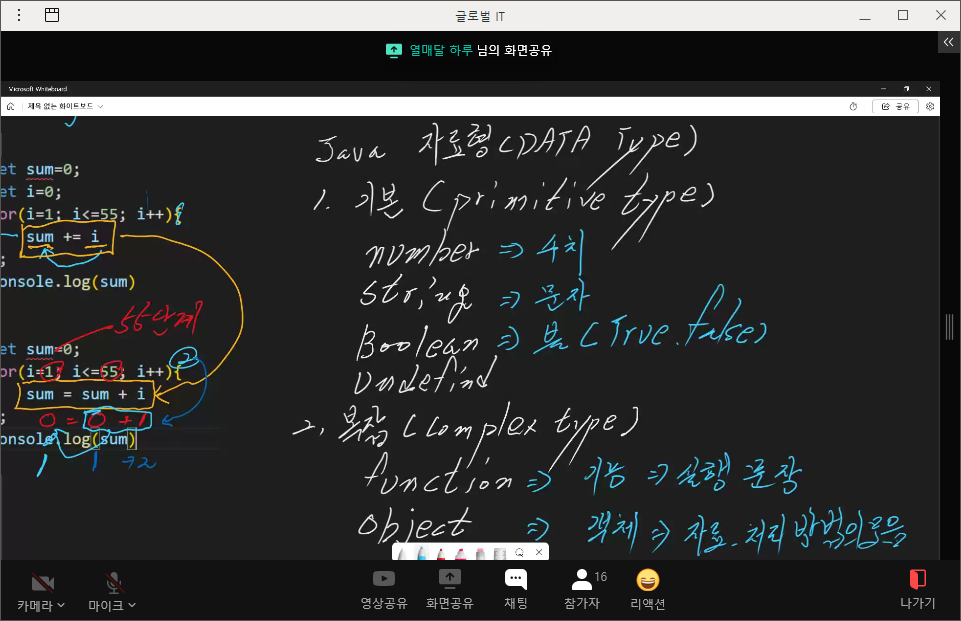 글로벌 IT
열매달 하루 님의 화면공유
Microsoft Whiteboard
제목 없는 화이트보드
공유
et sum=0;
et i=0;
or(i=1; i<=55; i++){
sum += i
;
onsole.log(sum)
55단계
et sum=0;
or(i=1; i<=55; i++){
2
sum = sum + i
;
0 = 0 + 1
onsole.log(sum)
1
1 +2
Java 자료형 (DATA Type)
1. 기본 (primitive type)
number => 수치
String => 문자
Boolean => 불 (True.false)
Undefind
2. 복잡 (Complex type)
function => 기능 => 실행 문장
object => 객체 => 자료.처리 방법의 모음
카메라
마이크
영상공유
화면공유
채팅
16
참가자
리액션
나가기